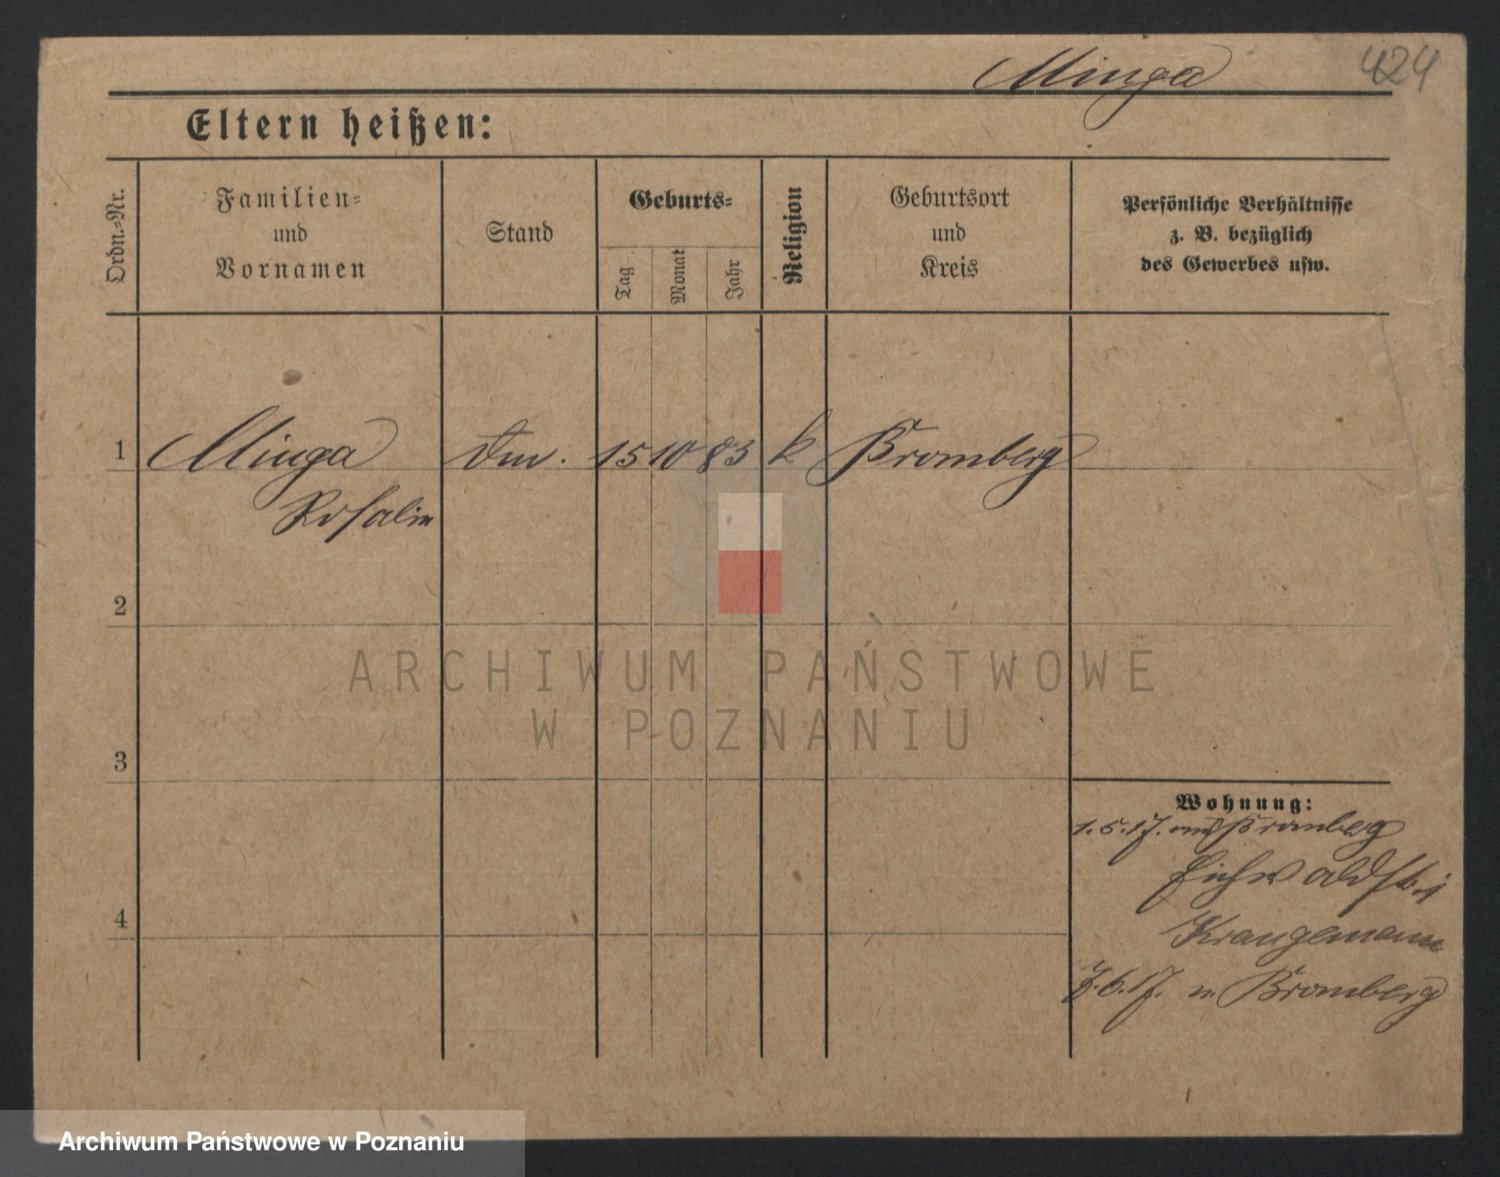 Minga 424
Eltern heißen:
Ordn.-Nr.
Familien-
und
Vornamen
Stand
Geburts-
Tag
Monat
Jahr
Religion
Geburtsort
und
Kreis
Persönliche Verhältnisse
z. B. bezüglich
des Gewerbes usw.
1 Minga 15 10 83 k Bromberg
Rosalie
2
3
4
Wohnung:
1.5.17. aus Bromberg
Eichwaldstr.
7.6.17. n. Bromberg
ARCHIWUM PAŃSTWOWE
W POZNANIU
Archiwum Państwowe w Poznaniu